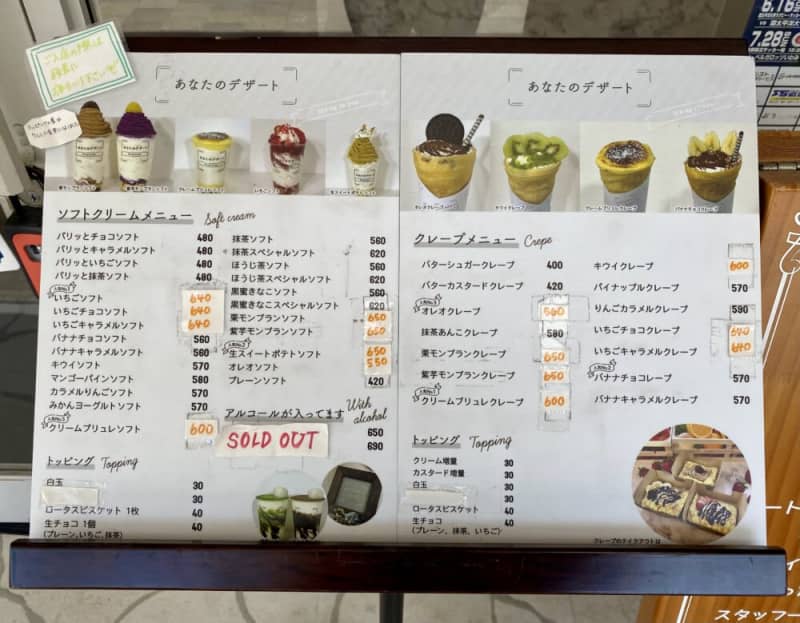 あなたのデザート
ソフトクリームメニュー Soft cream
パリッとチョコソフト 480
パリッとキャラメルソフト 480
パリッといちごソフト 480
パリッと抹茶ソフト 480
いちごソフト 640
いちごチョコソフト 640
いちごキャラメルソフト 640
バナナチョコソフト 560
バナナキャラメルソフト 560
キウイソフト 570
マンゴーパインソフト 580
カラメルりんごソフト 570
みかんヨーグルトソフト 570
クリームブリュレソフト 600
トッピング Topping
白玉 30
30
ロータスビスケット 1枚 40
生チョコ 1個 40
(プレーン,いちご,抹茶)
抹茶ソフト 560
抹茶スペシャルソフト 620
ほうじ茶ソフト 560
ほうじ茶スペシャルソフト 620
黒蜜きなこソフト 560
黒蜜きなこスペシャルソフト 620
栗モンブランソフト 650
紫芋モンブランソフト 650
生スイートポテトソフト 650
オレオソフト 550
プレーンソフト 420
アルコールが入ってます With alcohol
SOLD OUT
650
690
あなたのデザート
クレープメニュー Crepe
バターシュガークレープ 400
バターカスタードクレープ 420
オレオクレープ 560
抹茶あんこクレープ 580
栗モンブランクレープ 650
紫芋モンブランクレープ 650
クリームブリュレクレープ 600
キウイクレープ 600
パイナップルクレープ 570
りんごカラメルクレープ 590
いちごチョコクレープ 640
いちごキャラメルクレープ 640
バナナチョコレープ 570
バナナキャラメルクレープ 570
トッピング Topping
クリーム増量 30
カスタード増量 30
白玉 30
30
ロータスビスケット 40
生チョコ 40
(プレーン、抹茶、いちご)
クレープのテイクアウトは
7.28
スタッフ